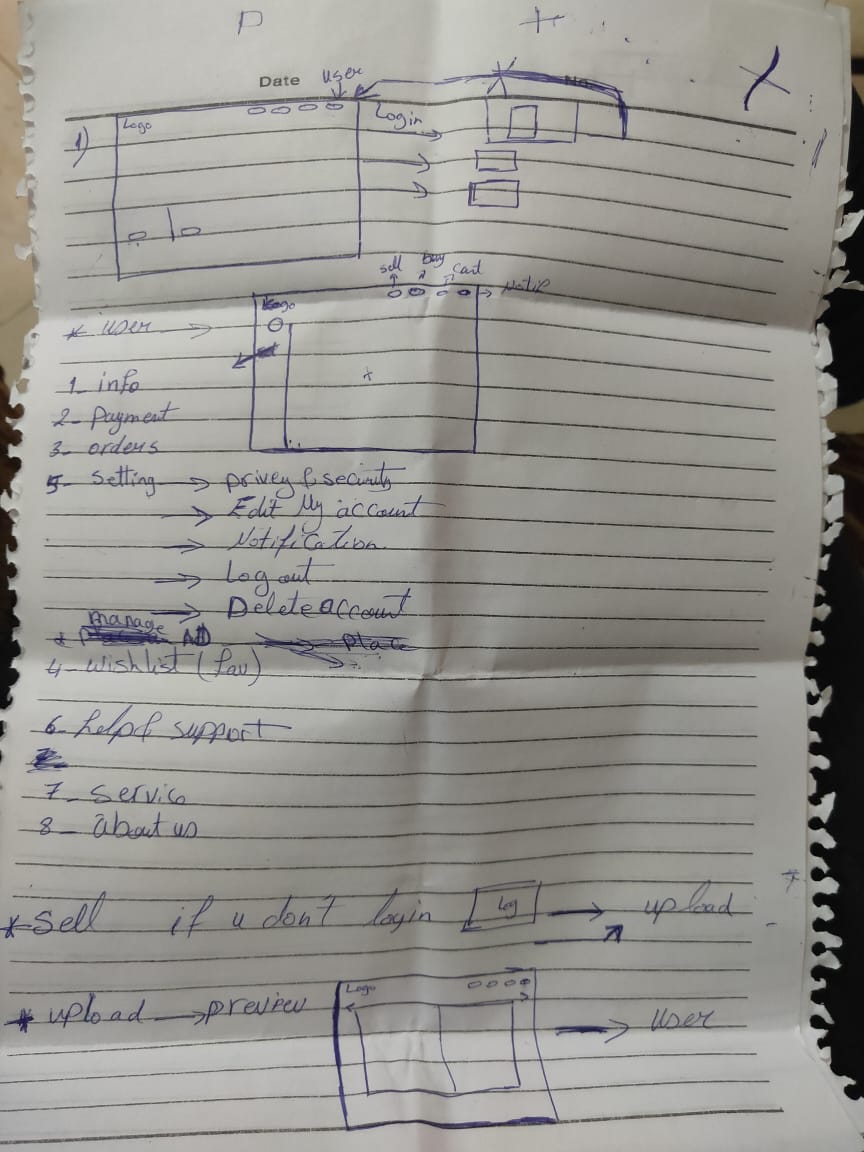 Date user No.
1) Logo Login
sell buy cart
Logo Notif
* user
1- info
2- Payment
3- orders
5- Setting → privey & security
→ Edit My account
→ Notification
→ Log out
→ Delete account
* manage AD place
4- wishlist (fav)
6- help & support
7- servic
8- about us
* Sell if u don't login Log → upload
* upload → preview Logo → user